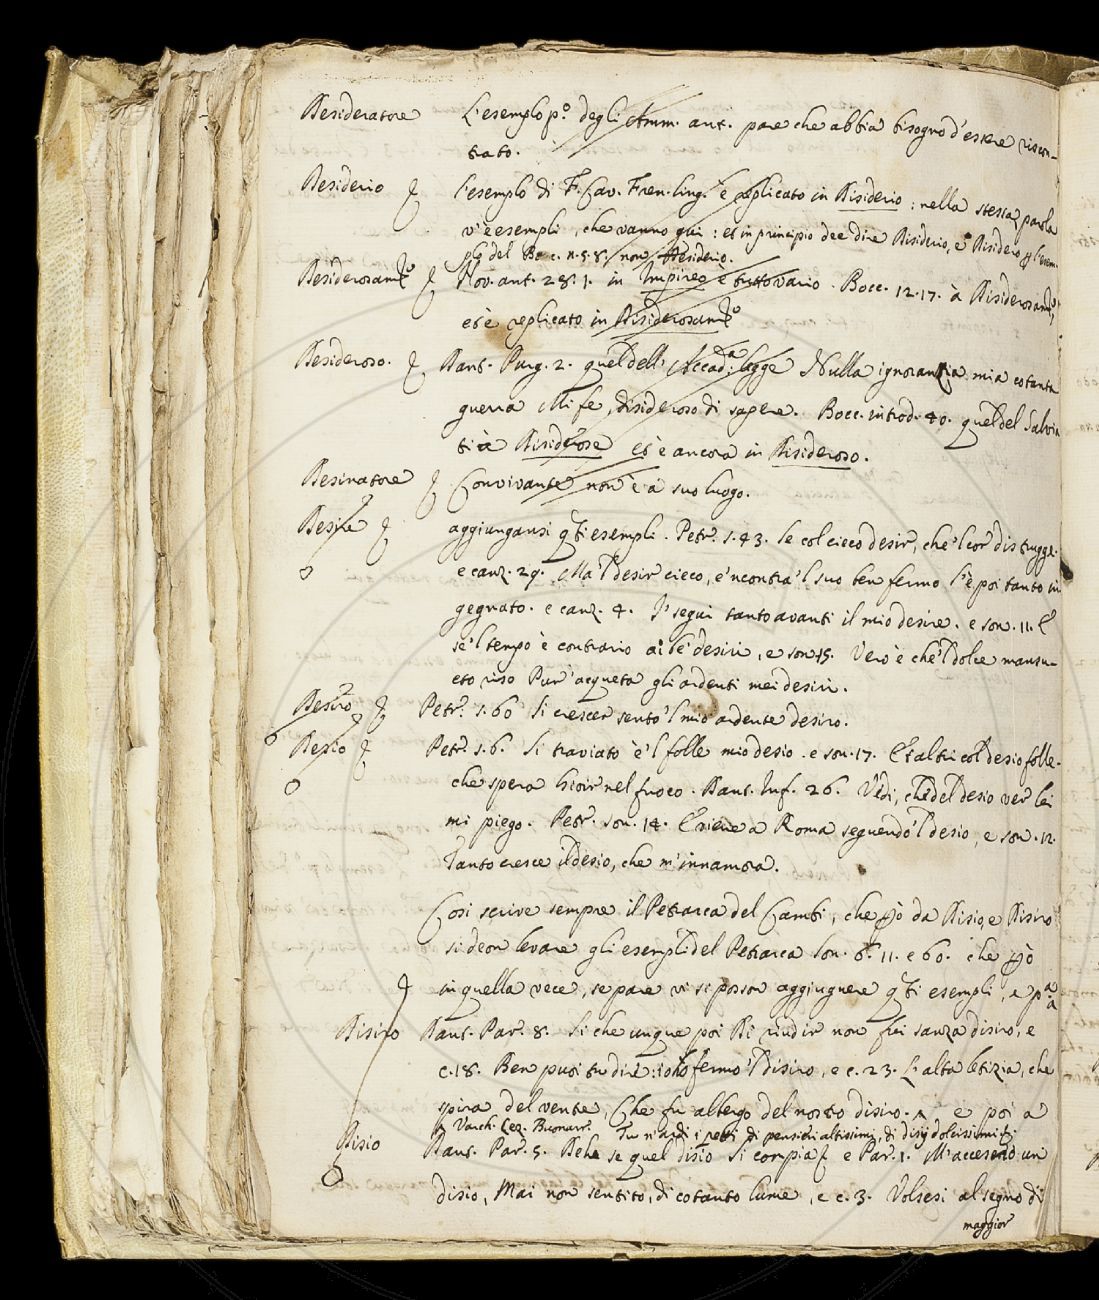 Desideratore L'esemplo p.º degli Amm. ant. pare che abbia bisogno d'essere riscon-
trato.
Desiderio L'esemplo di F. Cav. Fren. ling. è replicato in Disiderio: nella stessa parola
v'è esempli, che vanno qui: et in principio dee dire Disiderio, e Disidero
plo del Bocc. n. 5. 8. non Desiderio.
Desiderosam.te Nov. ant. 28. 1. in Impireo è tutto vario. Bocc. 12. 17. à Disiderosam.te,
et è replicato in Disiderosam.te
Desideroso. Dant. Purg. 2. quel dell' Accad.a legge Nulla ignoranzia mia cotanta
guerra Mi fe, disideroso di sapere. Bocc. introd. 40. quel del Salvia
ti à Disiderose et è ancora in Disideroso.
Desinatore Convivante non è a suo luogo.
Desire aggiungansi q.ti esempli. Petr. s. 43. Se col cieco desir, che 'l cor distrugge.
e canz. 29. Ma 'l desir cieco, e 'ncontra 'l suo ben fermo S'è poi tanto in
gegnato. e canz. 4. I' segui tanto avanti il mio desire. e son. 11. E
se 'l tempo è contrario ai be' desiri, e son. 15. Vero è che 'l dolce mansu-
eto riso Pur' acqueta gli ardenti miei desiri.
Desiro Petr. s. 60 Si crescer sento 'l mio ardente desiro.
Desio Petr. s. 6. Si traviato è 'l folle mio desio. e son. 17. Et altri col desio folle.
che spera Gioir nel fuoco. Dant. Inf. 26. Vedi, che del desio ver lei
mi piego. Petr. son. 14. E viene a Roma seguendo 'l desio, e son. 12.
Tanto cresce il desio, che m'innamora.
Così scrive sempre il Petrarca del Cambi, che però da Disio, e Disiro
si deon levare gli esempli del Petrarca son. 6. 11. e 60. che però
in quella vece, se pare vi si posson aggiugnere q.ti esempli, e p.a a
Disiro Dant. Par. 8. Si che unque poi Di riudir non fui sanza disiro, e
c. 18. Ben puoi tu dire: i ho fermo 'l disiro, e c. 23. L'alta letizia, che
spira del ventre, Che fu albergo del nostro disiro. e poi a
Varchi Lez. Buonarr. Tu n'ardi i petti di pensieri altissimi, di disij dolcissimi &.
Disio Dant. Par. 5. Deh se quel disio Si compia & e Par. 1. M'accesero un
disio, Mai non sentito, di cotanto lume, e c. 3. Volsesi al segno di
maggior